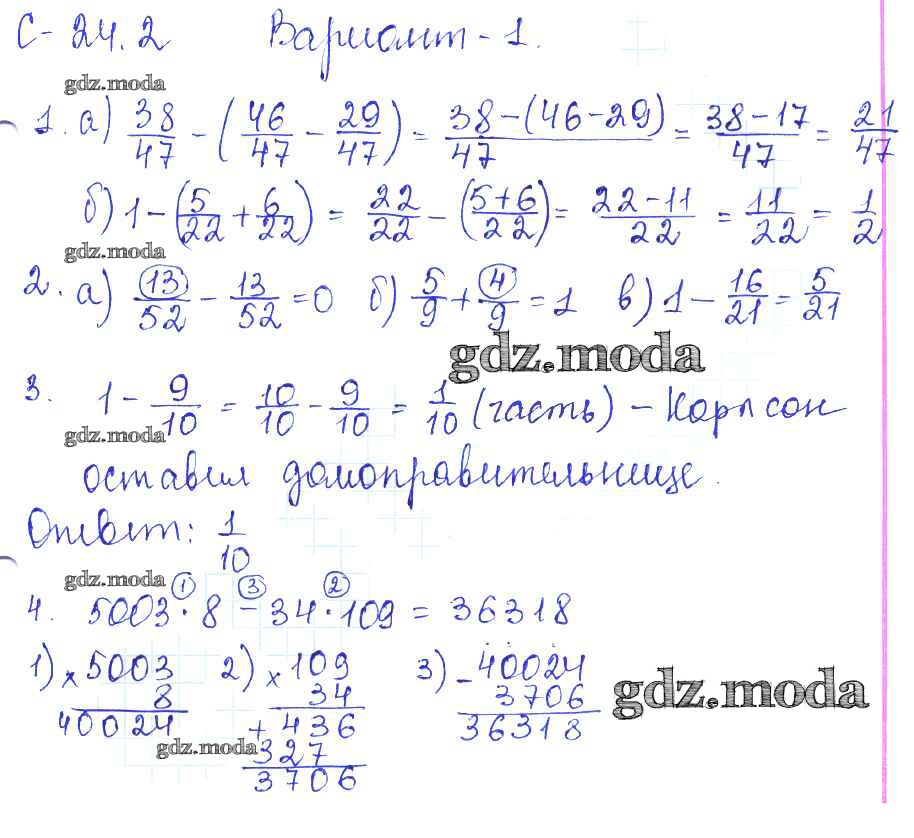 С-24.2 Вариант-1.
gdz.moda
1. а) 38/47 - (46/47 - 29/47) = 38-(46-29)/47 = 38-17/47 = 21/47
б) 1-(5/22 + 6/22) = 22/22 - (5+6/22) = 22-11/22 = 11/22 = 1/2
gdz.moda
2. а) 13/52 - 13/52 = 0 б) 5/9 + 4/9 = 1 в) 1 - 16/21 = 5/21
gdz.moda
3. 1 - 9/10 = 10/10 - 9/10 = 1/10 (часть) - Карлсон
gdz.moda
оставил домоправительнице.
Ответ: 1/10
gdz.moda
1 3 2
4. 5003 · 8 - 34 · 109 = 36318
1) × 5003 2) × 109 3) - 40024
8 34 3706
40024 + 436 36318
gdz.moda
gdz.moda
327
3706